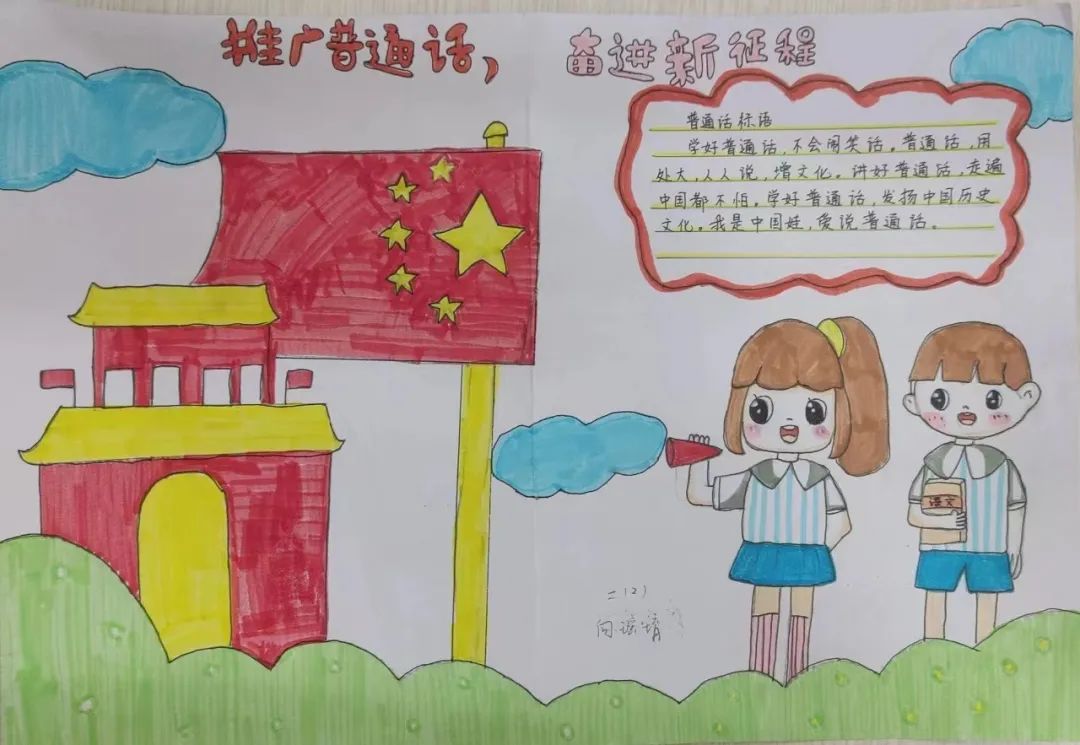 推广普通话，奋进新征程
普通话标语
学好普通话，不会闹笑话。普通话，用
处大，人人说，增文化。讲好普通话，走遍
中国都不怕。学好普通话，发扬中国历史
文化。我是中国娃，爱说普通话。
语文
二(2)
向